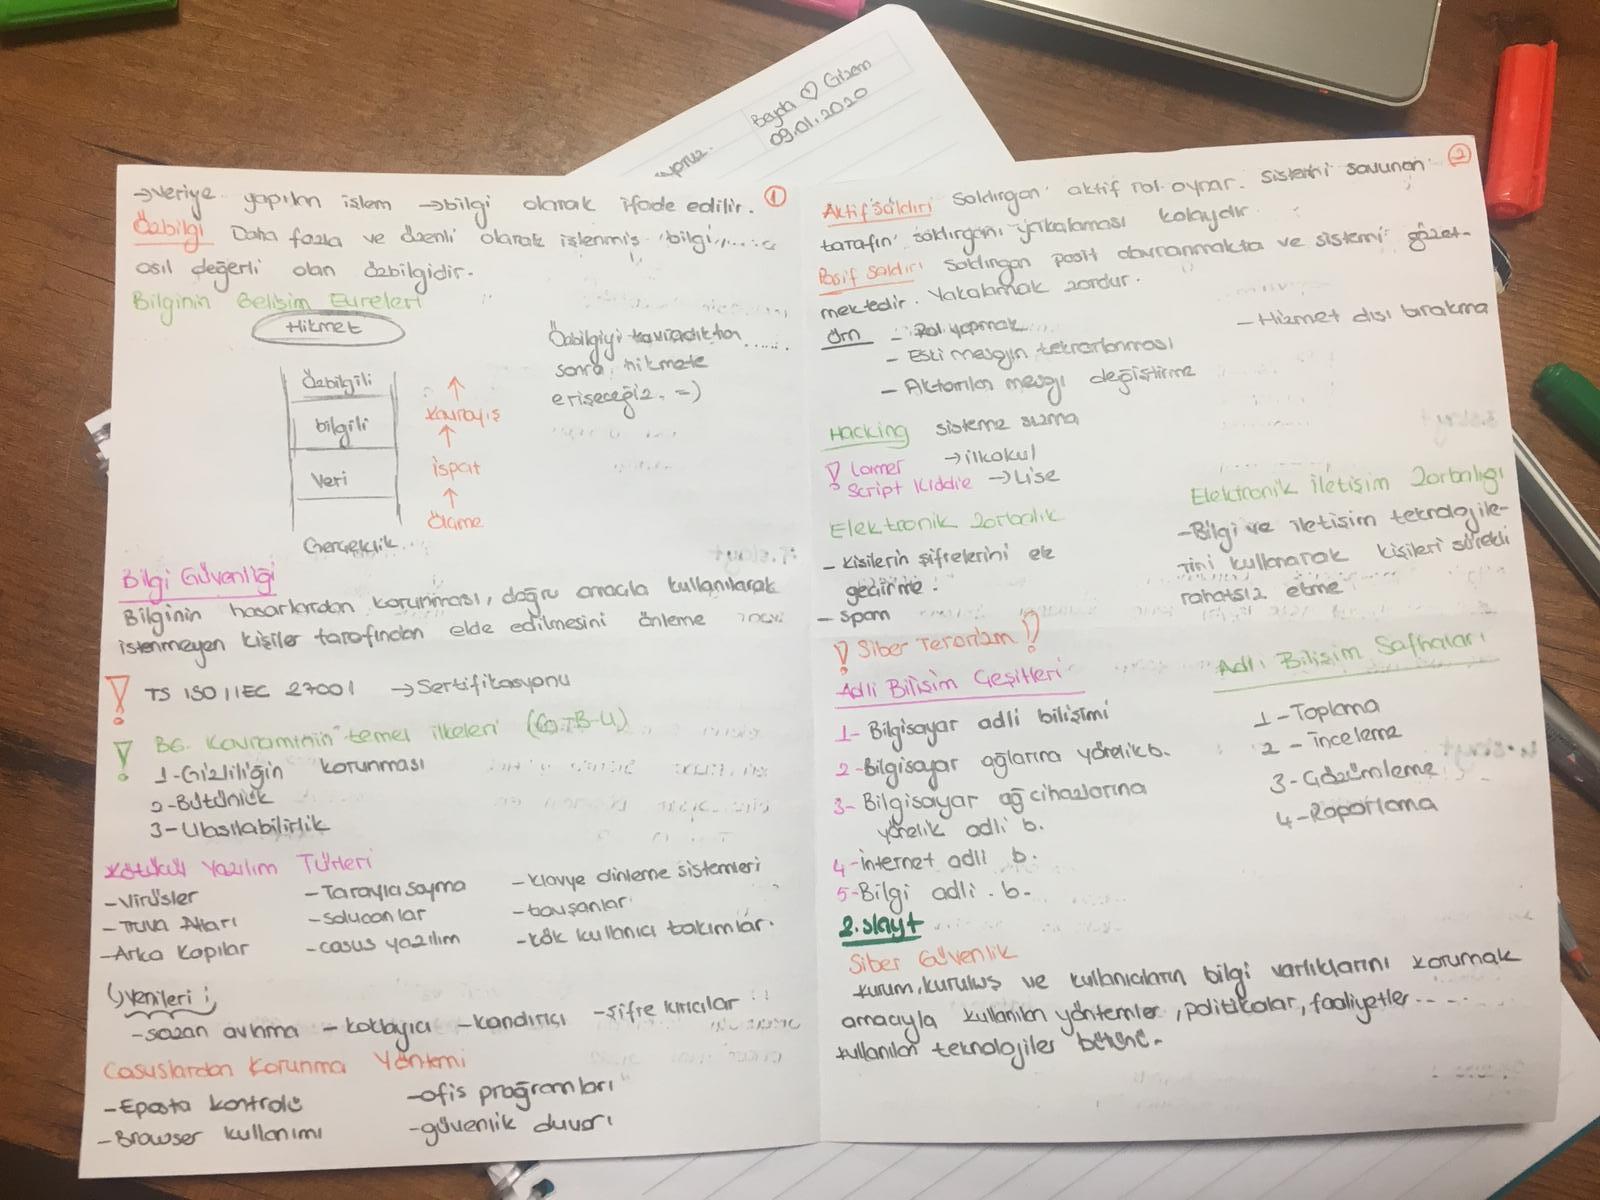 Beyda ♡ Gizem
09.01.2020
①
→veriye yapılan işlem →bilgi olarak ifade edilir.
Özbilgi Daha fazla ve özenli olarak işlenmiş bilgi......
asıl değerli olan özbilgidir.
Bilginin Gelişim Evreleri
Hikmet
Özbilgili
bilgili
Veri
Gerçeklik
↑
Kavrayış
↑
ispat
↑
Ölçme
Özbilgiyi kavradıktan
sonra hikmete
erişeceğiz. =)
Bilgi Güvenliği
Bilginin hasarlardan korunması, doğru amaçla kullanılarak
istenmeyen kişiler tarafından elde edilmesini önleme
! TS ISO IEC 27001 →Sertifikasyonu
! BG. Kavramının temel ilkeleri (G-B-U)
1-Gizliliğin korunması
2-Bütünlük
3-Ulaşılabilirlik
Kötücül Yazılım Türleri
-Virüsler
-Truva Atları
-Arka Kapılar
-Tarayıcı soyma
-solucanlar
-casus yazılım
-klavye dinleme sistemleri
-tavşanlar
-kök kullanıcı takımlar.
yenileri ;
-sazan avlama -koklayıcı -kandırıcı -şifre kırıcılar
Casuslardan Korunma Yöntemi
-Eposta kontrolü
-Browser kullanımı
-ofis programları
-güvenlik duvarı
②
Aktif saldırı saldırgan aktif rol oynar. Sistemi savunan
tarafın saldırganı yakalaması kolaydır.
Pasif saldırı saldırgan pasif davranmakta ve sistemi gözet-
mektedir. Yakalamak zordur.
Örn - Rol yapmak
- Eski mesajın tekrarlanması
- Aktarılan mesajı değiştirme
- Hizmet dışı bırakma
Hacking sisteme sızma
! Lamer →ilkokul
Script Kiddie →Lise
Elektronik Zorbalık
- Kişilerin şifrelerini ele
geçirme.
- Spam
Elektronik iletişim Zorbalığı
-Bilgi ve iletişim teknolojile-
rini kullanarak kişileri sürekli
rahatsız etme
! Siber Terörizm !
Adli Bilişim Çeşitleri
1- Bilgisayar adli bilişimi
2-Bilgisayar ağlarına yönelik b.
3- Bilgisayar ağ cihazlarına
yönelik adli b.
4-internet adli b.
5-Bilgi adli. b.
Adli Bilişim Safhaları
1-Toplama
2 - inceleme
3-Çözümleme
4-Raporlama
2.slayt
Siber Güvenlik
kurum, kuruluş ve kullanıcıların bilgi varlıklarını korumak
amacıyla kullanılan yöntemler, politikalar, faaliyetler ----
kullanılan teknolojiler bütünü.